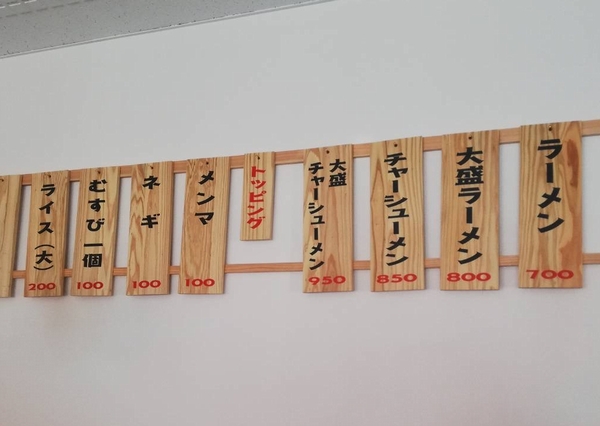 ラーメン
700
大盛ラーメン
800
チャーシューメン
850
大盛
チャーシューメン
950
トッピング
メンマ
100
ネギ
100
むすび一個
100
ライス(大)
200